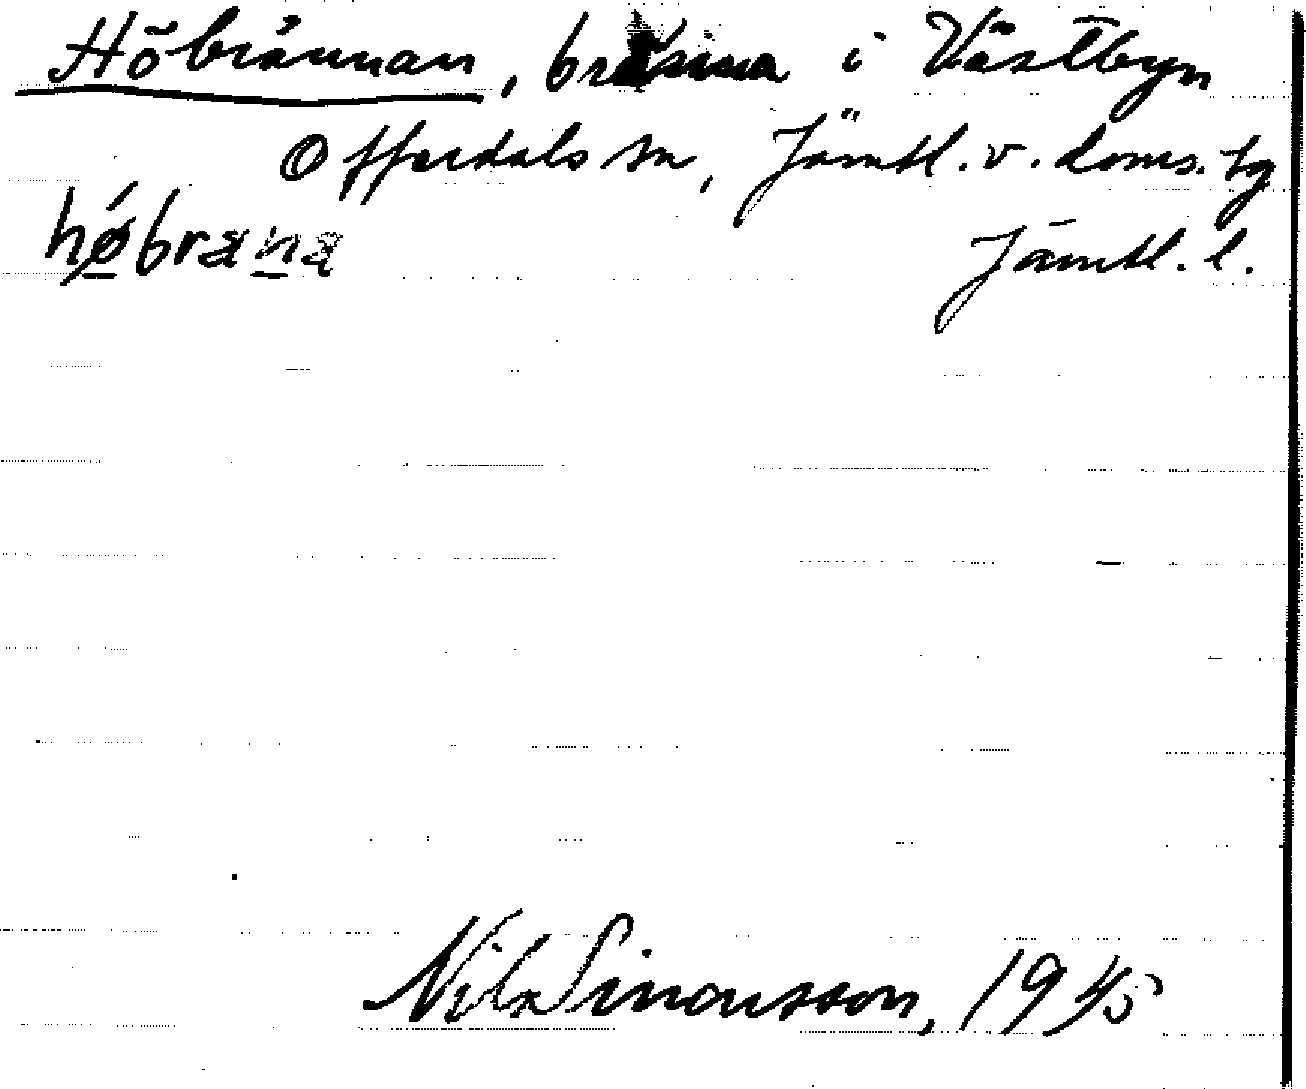 Höbrännan, bränna i Västbyn
Offerdals sn, Jämtl. v. doms. tg
høbrana
Jämtl. l.
Nils Simonsson, 1945